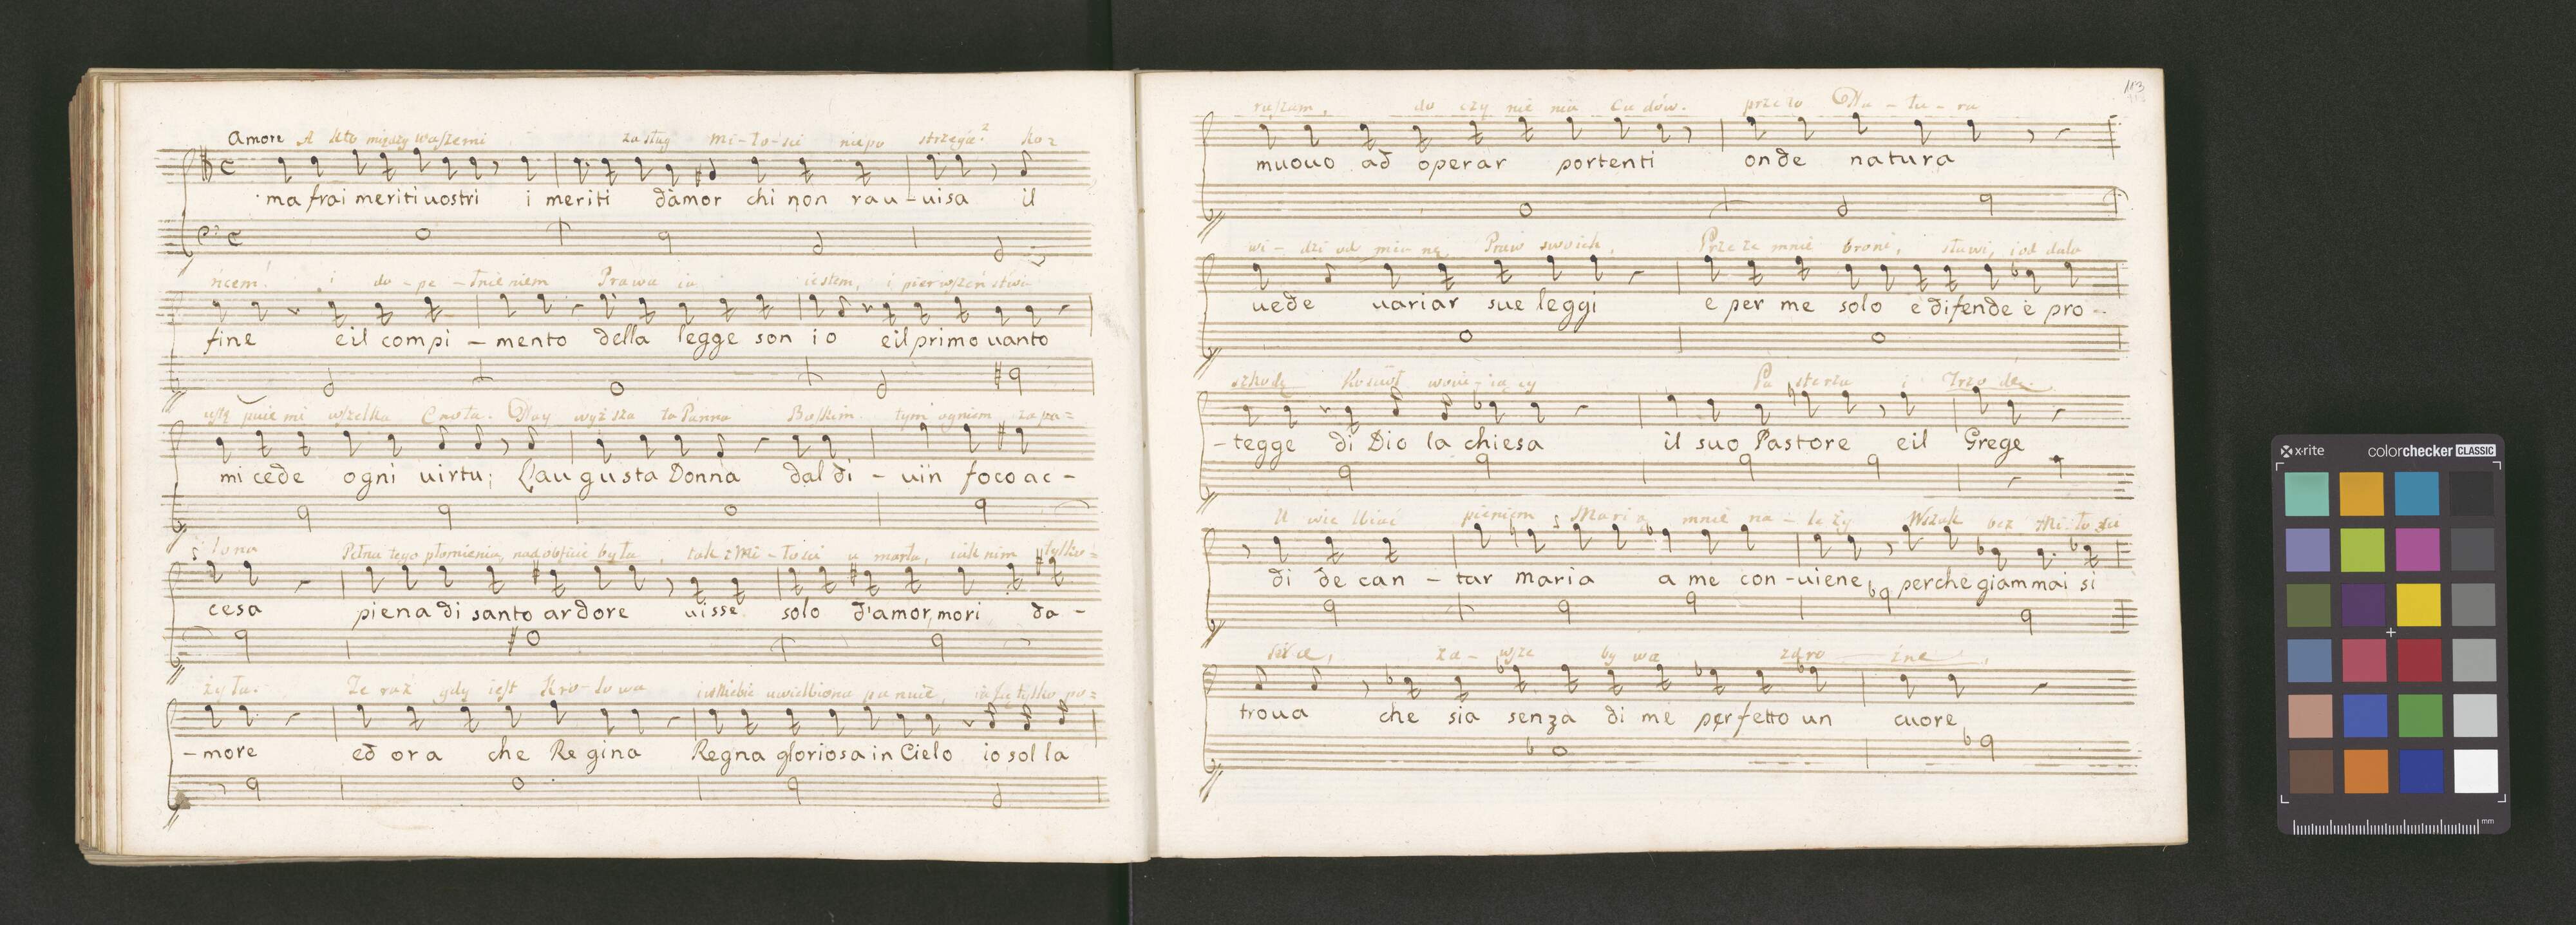 Amore A kto między waszemi zasług mi-ło-ści niepo strzega? ko=
ma frai meriti uostri i meriti d'amor chi non rau-uisa il
ńcem! i do-pe-łnieniem Prawa ia iestem, i pierwszeństwa
fine eil compi-mento della legge son io eil primo uanto
ustę puie mi wszelka Cnota. Nay wyższa ta Panna Boskim tym ogniem zapa=
mi cede ogni uirtu; L'augusta Donna dal di-uin foco ac-
lona Pełna tego płomienia, nad obficie była, tak z Mi-łości u marła, iak nim tylko=
cesa piena di santo ardore uisse solo d'amor, mori da-
żyła. Te raz gdy iest Kro-lowa w Niebie uwielbiona panuie, ia ią tylko po=
-more ed ora che Regina Regna gloriosa in Cielo io sol la
113
ruszam, do czy nie nia Cu dów. przeto Na-tu-ra
muouo ad operar portenti onde natura
wi-dzi od mia nę Praw swoich, Prze ze mnie broni, stawi, i od dala
uede uariar sue leggi e per me solo e difende e pro-
szkodę Kosciół woiu-ią cy Pa sterza i Trzo dę.
-tegge di Dio la chiesa il suo Pastore eil Grege
U wie lbiać pieniem Maria mnie na-le ży Wszak bez Mi-ło ści
di de can-tar maria a me con-uiene, perche giammai si
serce, za-wsze by wa zdro żne,
troua che sia senza di me perfetto un cuore
x-rite colorchecker CLASSIC
mm